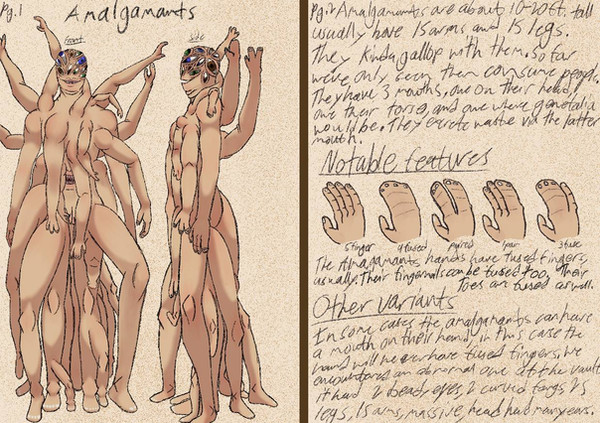 Pg.1
Amalgamants
front
side
Pg.2 Amalgamants are about 10-20ft. tall
usually have 15 arms and 15 legs.
They kinda gallop with them. so far
we've only seen them consume people.
They have 3 mouths, one on their head,
one their torso, and one where genetalia
would be. They excrete waste via the latter
mouth.
Notable features
5 finger
4 fused
paired
1 pair
3 fuse
The Amalgamants hands have fused fingers,
usually. Their fingernails can be fused too, Their
Toes are fused as well.
Other variants
In some cases the amalgamants can have
a mouth on their hand, in this case the
hand will never have fused fingers. We
encountered an abnormal one at the vault
it had 2 beady eyes, 2 curved fangs, 25
legs, 15 arms, massive head had many ears.